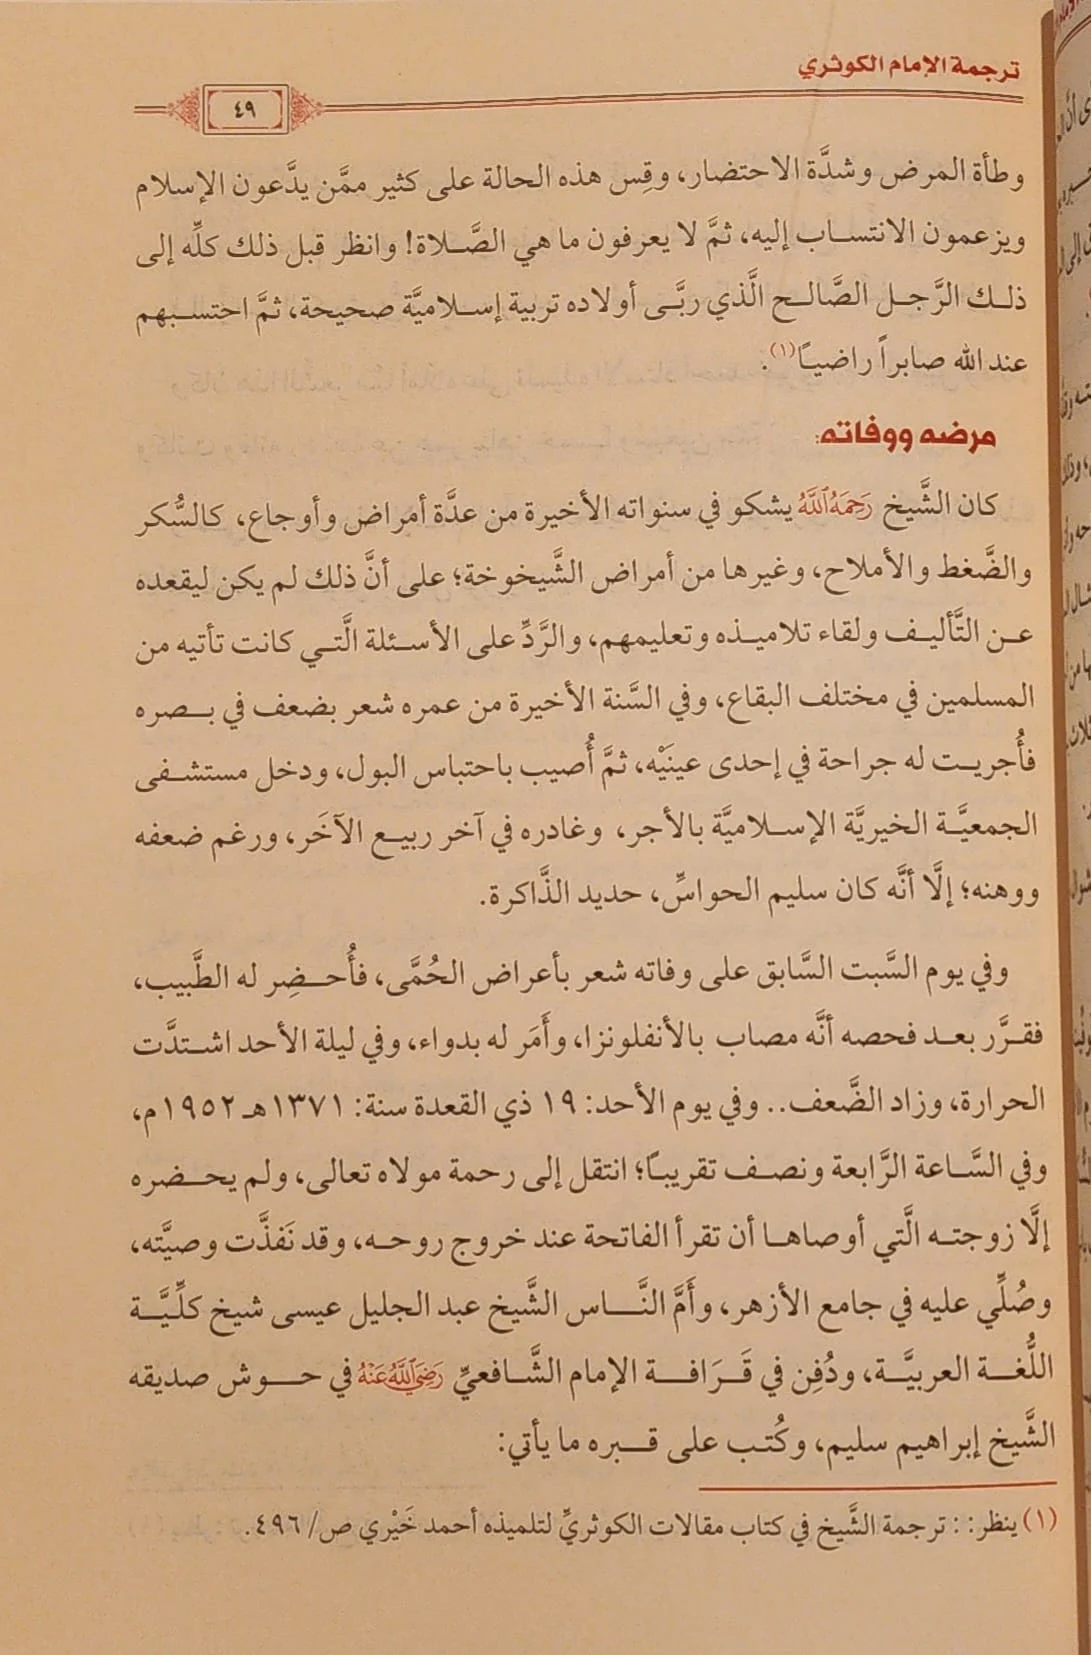 ترجمة الإمام الكوثري
٤٩
وطأة المرض وشدَّة الاحتضار، وقِس هذه الحالة على كثير ممَّن يدَّعون الإسلام
ويزعمون الانتساب إليه، ثمَّ لا يعرفون ما هي الصَّلاة! وانظر قبل ذلك كلِّه إلى
ذلك الرَّجل الصَّالح الَّذي ربَّى أولاده تربية إسلاميَّة صحيحة، ثمَّ احتسبهم
عند الله صابراً راضيًا(١).
مرضه ووفاته:
كان الشَّيخ رَحِمَهُ ٱللَّهُ يشكو في سنواته الأخيرة من عدَّة أمراض وأوجاع، كالسُّكر
والضَّغط والأملاح، وغيرها من أمراض الشَّيخوخة؛ على أنَّ ذلك لم يكن ليقعده
عن التَّأليف ولقاء تلاميذه وتعليمهم، والرَّدِّ على الأسئلة الَّتي كانت تأتيه من
المسلمين في مختلف البقاع، وفي السَّنة الأخيرة من عمره شعر بضعف في بصره
فأُجريت له جراحة في إحدى عينَيْه، ثمَّ أُصيب باحتباس البول، ودخل مستشفى
الجمعيَّة الخيريَّة الإسلاميَّة بالأجر، وغادره في آخر ربيع الآخَر، ورغم ضعفه
ووهنه؛ إلَّا أنَّه كان سليم الحواسِّ، حديد الذَّاكرة.
وفي يوم السَّبت السَّابق على وفاته شعر بأعراض الحُمَّى، فأُحضِر له الطَّبيب،
فقرَّر بعد فحصه أنَّه مصاب بالأنفلونزا، وأَمَر له بدواء، وفي ليلة الأحد اشتدَّت
الحرارة، وزاد الضَّعف.. وفي يوم الأحد: ١٩ ذي القعدة سنة: ١٣٧١هـ ١٩٥٢م،
وفي السَّاعة الرَّابعة ونصف تقريبًا؛ انتقل إلى رحمة مولاه تعالى، ولم يحضره
إلَّا زوجته الَّتي أوصاها أن تقرأ الفاتحة عند خروج روحه، وقد نَفذَّت وصيَّته،
وصُلِّي عليه في جامع الأزهر، وأَمَّ النَّاس الشَّيخ عبد الجليل عيسى شيخ كلِّيَّة
اللُّغة العربيَّة، ودُفِن في قَرَافة الإمام الشَّافعيِّ رَضِيَ ٱللَّهُ عَنْهُ في حوش صديقه
الشَّيخ إبراهيم سليم، وكُتب على قبره ما يأتي:
(١) ينظر: : ترجمة الشَّيخ في كتاب مقالات الكوثريِّ لتلميذه أحمد خَيْري ص/ ٤٩٦.